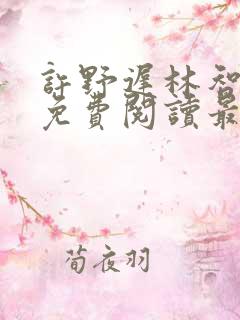 許野遲林知
免費閱讀最
荀夜羽